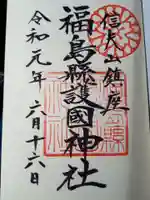 信夫山鎮座
福島縣護國神社
令和元年六月十六日